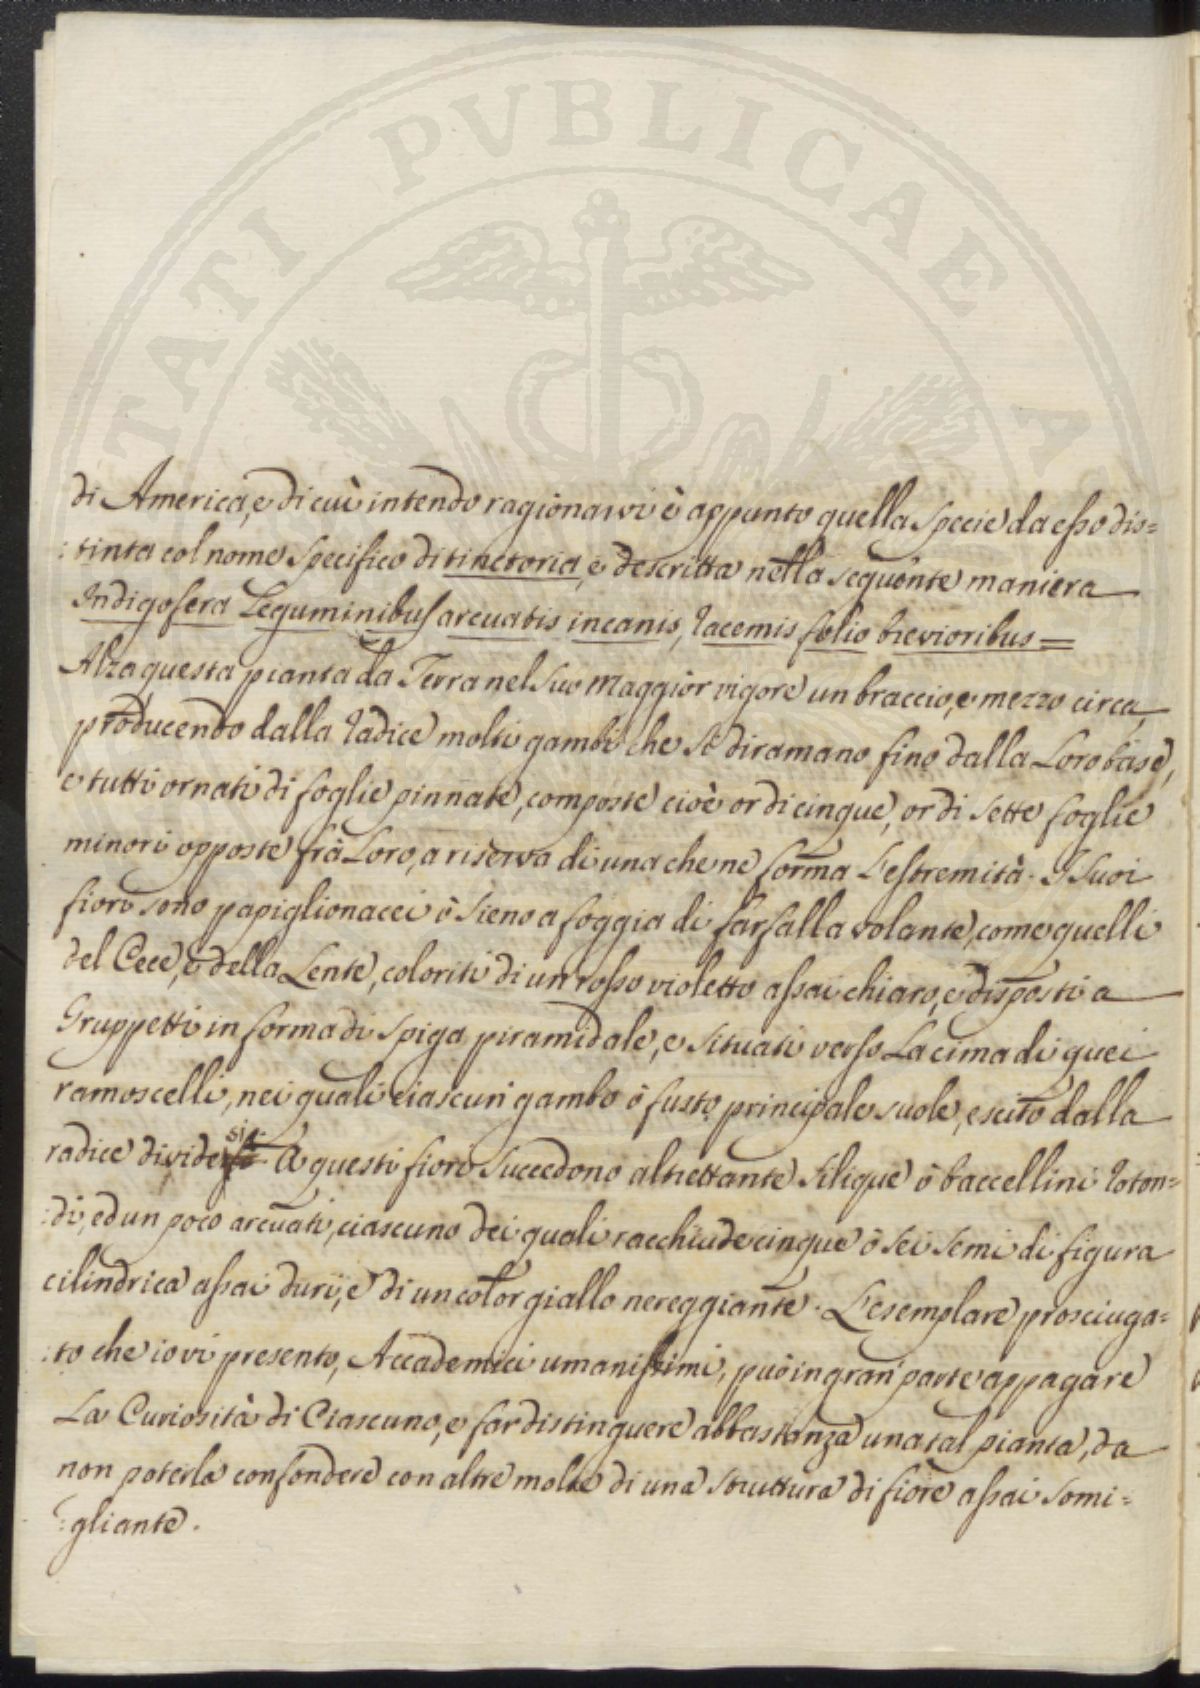 TATI PVBLICAE A
di America, e di cui intendo ragionarvi è appunto quella specie da esso dis=
:tinta col nome specifico di tinctoria, e descritta nella seguente maniera
Indigofera Leguminibus arcuatis incanis, racemis folio brevioribus=
Alza questa pianta da Terra nel suo maggior vigore un braccio, e mezzo circa,
producendo dalla radice molti gambi che si diramano fino dalla Loro base,
e tutti ornati di foglie pinnate, composte cioè or di cinque, or di sette foglie
minori opposte frà Loro, a riserva di una che ne forma L'estremità. I suoi
fiori sono papiglionacei ò sieno a foggia di farfalla volante, come quelli
del Cece, e della Lente, coloriti di un rosso violetto assai chiaro, e disposti a
Gruppetti in forma di spiga piramidale, e situati verso La cima di quei
ramoscelli, nei quali ciascun gambo ò fusto principale suole, escito dalla
radice dividersi. A questi fiori succedono altrettante silique ò baccellini roton=
:di, ed un poco arcuati, ciascuno dei quali racchiude cinque ò sei semi di figura
cilindrica assai durj, e di un color giallo nereggiante. L'esemplare prosciuga=
:to che io vi presento, Accademici umanissimi, può in gran parte appagare
La Curiosità di Ciascuno, e far distinguere abbastanza una tal pianta, da
non poterla confondere con altre molte di una struttura di fiore assai somi=
:gliante.